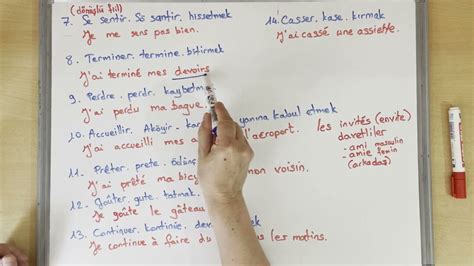 (dönüşlü fiil)
7. Se sentir. Sö santir. hissetmek
Je me sens pas bien.
8. Terminer. termine. bitirmek
J'ai terminé mes devoirs
9. Perdre. perdr. kaybetme
J'ai perdu ma bague.
10. Accueillir. Aköyir - ka yanına kabul etmek
J'ai accueilli mes a l'aeroport.
les invités (invite)
davetliler
- ami masculin
- amie femin
(arkadaş)
11. Prêter. prete. ödünç
J'ai prêté ma bic mon voisin.
12. Goûter. gute. tatmak.
Je goûte le gâteau
13. Continuer. kontinüe. devam
Je continue à faire du us les matins.
14. Casser. kase. kırmak
J'ai cassé une assiette.